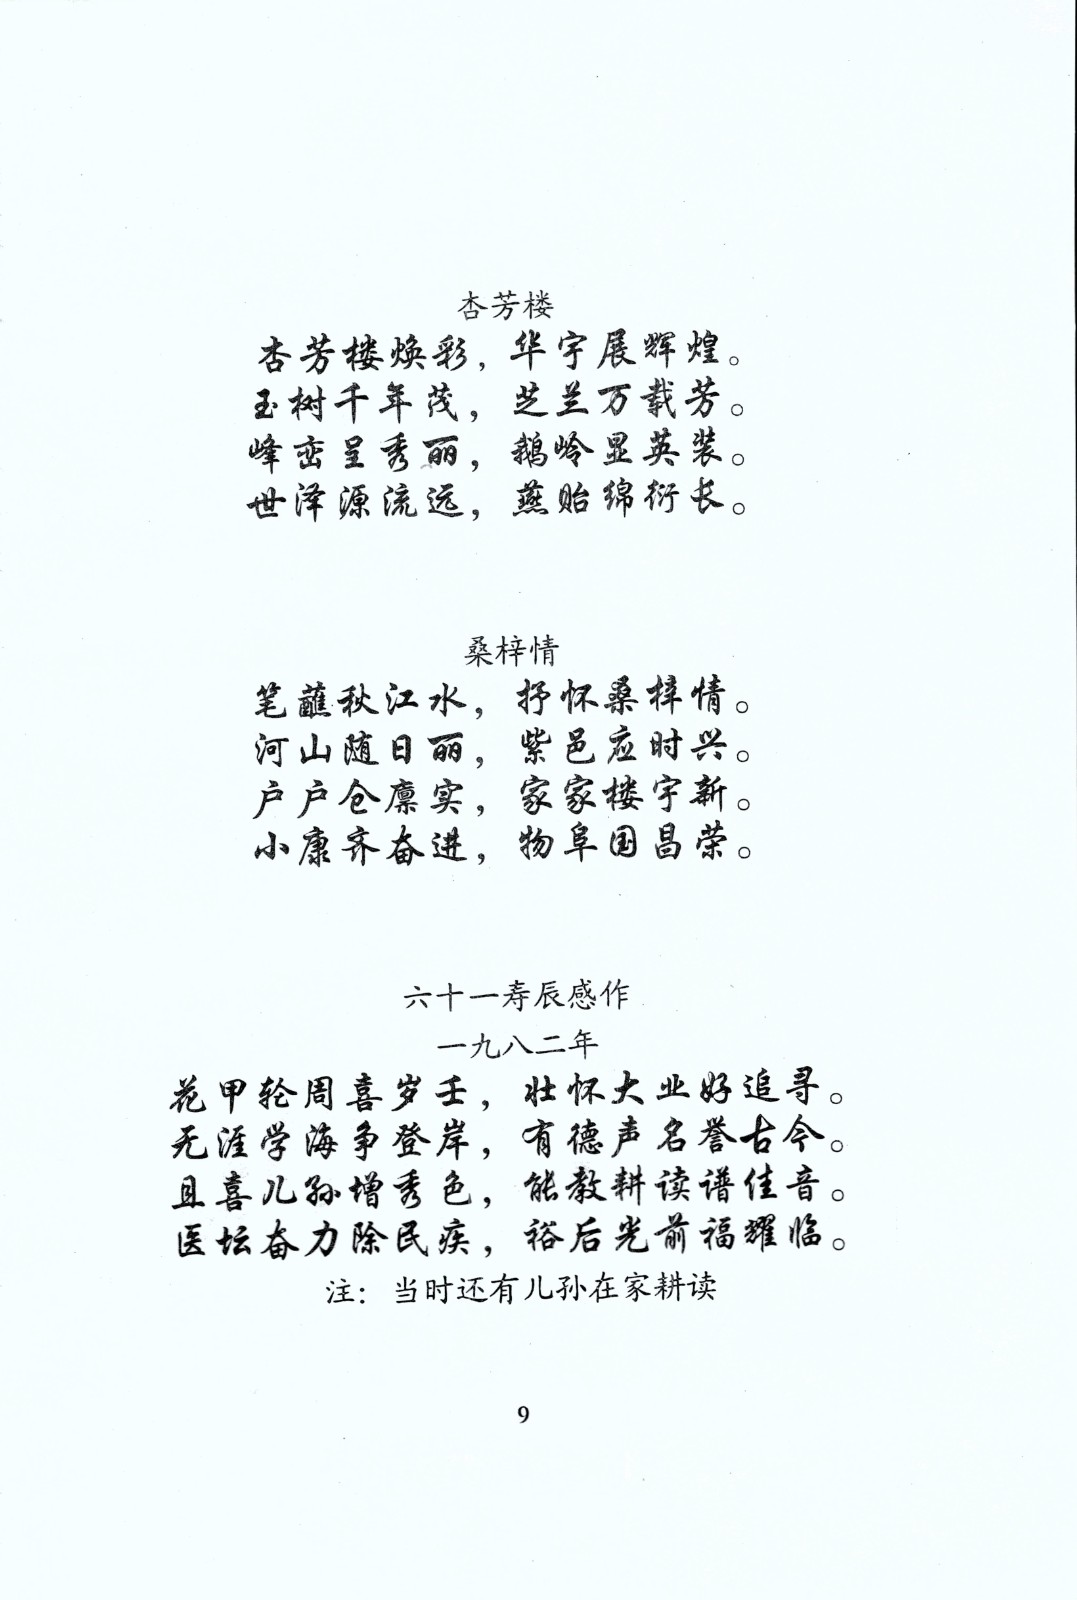 杏芳楼
杏芳楼焕彩，华宇展辉煌。
玉树千年茂，芝兰万载芳。
峰峦呈秀丽，鹅岭显英装。
世泽源流远，燕贻绵衍长。
桑梓情
笔蘸秋江水，抒怀桑梓情。
河山随日丽，紫邑应时兴。
户户仓廪实，家家楼宇新。
小康齐奋进，物阜国昌荣。
六十一寿辰感作
一九八二年
花甲轮周喜岁壬，壮怀大业好追寻。
无涯学海争登岸，有德声名誉古今。
且喜儿孙增秀色，能教耕读谱佳音。
医坛奋力除民疾，裕后光前福耀临。
注：当时还有儿孙在家耕读
9